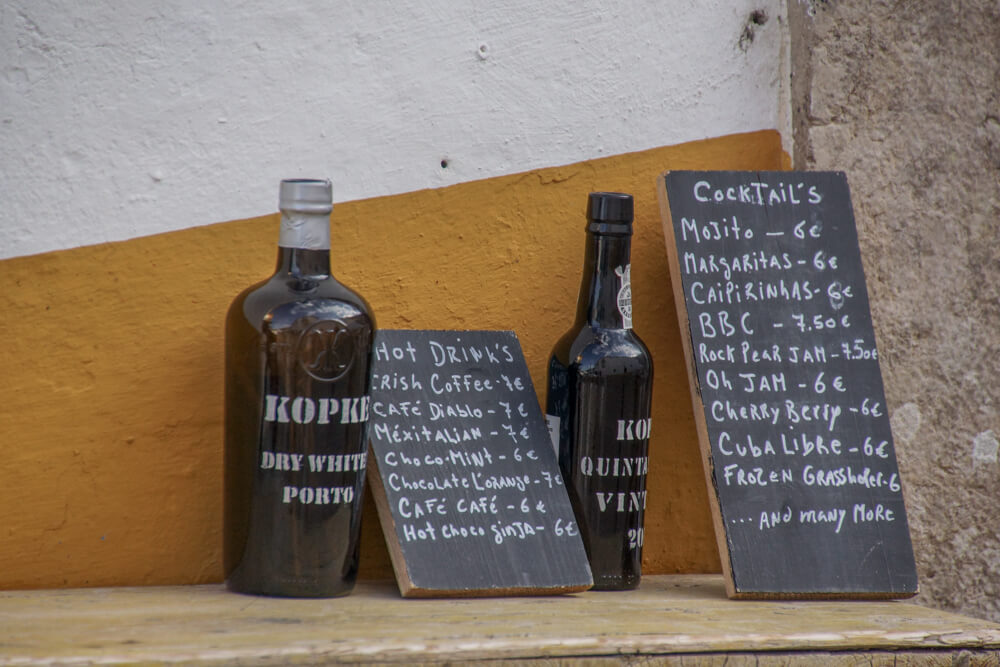 KOPKE
DRY WHITE
PORTO
Hot DRINK'S
IRish Coffee - 7€
CAFÉ DiABlo - 7€
MéxitALiAN - 7€
Choco-MiNt - 6€
Chocolate L'orange - 7€
CAFé CAFé - 6€
Hot choco ginJA - 6€
KOP
QUINTA
VINT
20
COCKTAIL'S
MoJito - 6€
MARgARitAS - 6€
CAiPiRiNhAS - 6€
BBC - 7.50€
Rock PeAR JAM - 7.50€
Oh JAM - 6€
CheRRy BeRRy - 6€
CubA LibRe - 6€
FROZEN GRASShoFeR - 6
... AND mANy MoRe